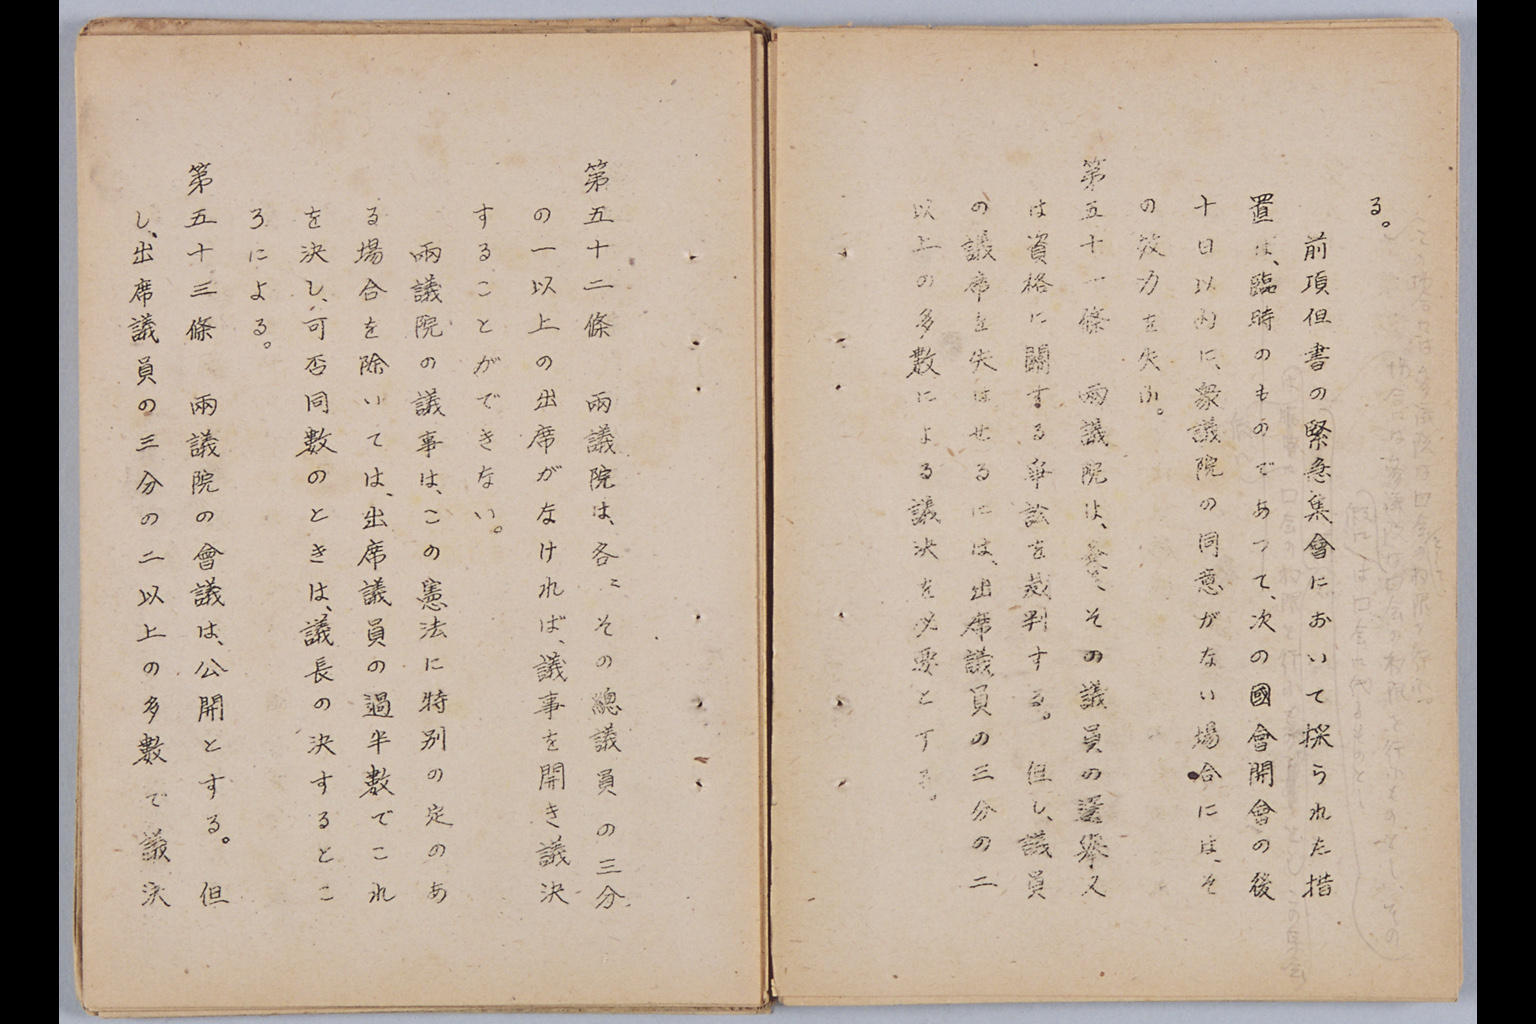 る。
前項但書の緊急集會において採られた措
置は、臨時のものであつて、次の國會開會の後
十日以内に、衆議院の同意がない場合には、そ
の效力を失ふ。
第五十一條　兩議院は、各〻、その議員の選擧又
は資格に關する爭訟を裁判する。但し、議員
の議席を失はせるには、出席議員の三分の二
以上の多數による議決を必要とする。
第五十二條　兩議院は、各〻その總議員の三分
の一以上の出席がなければ、議事を開き議決
することができない。
兩議院の議事は、この憲法に特別の定のあ
る場合を除いては、出席議員の過半數でこれ
を決し、可否同數のときは、議長の決するとこ
ろによる。
第五十三條　兩議院の會議は、公開とする。但
し、出席議員の三分の二以上の多數で議決